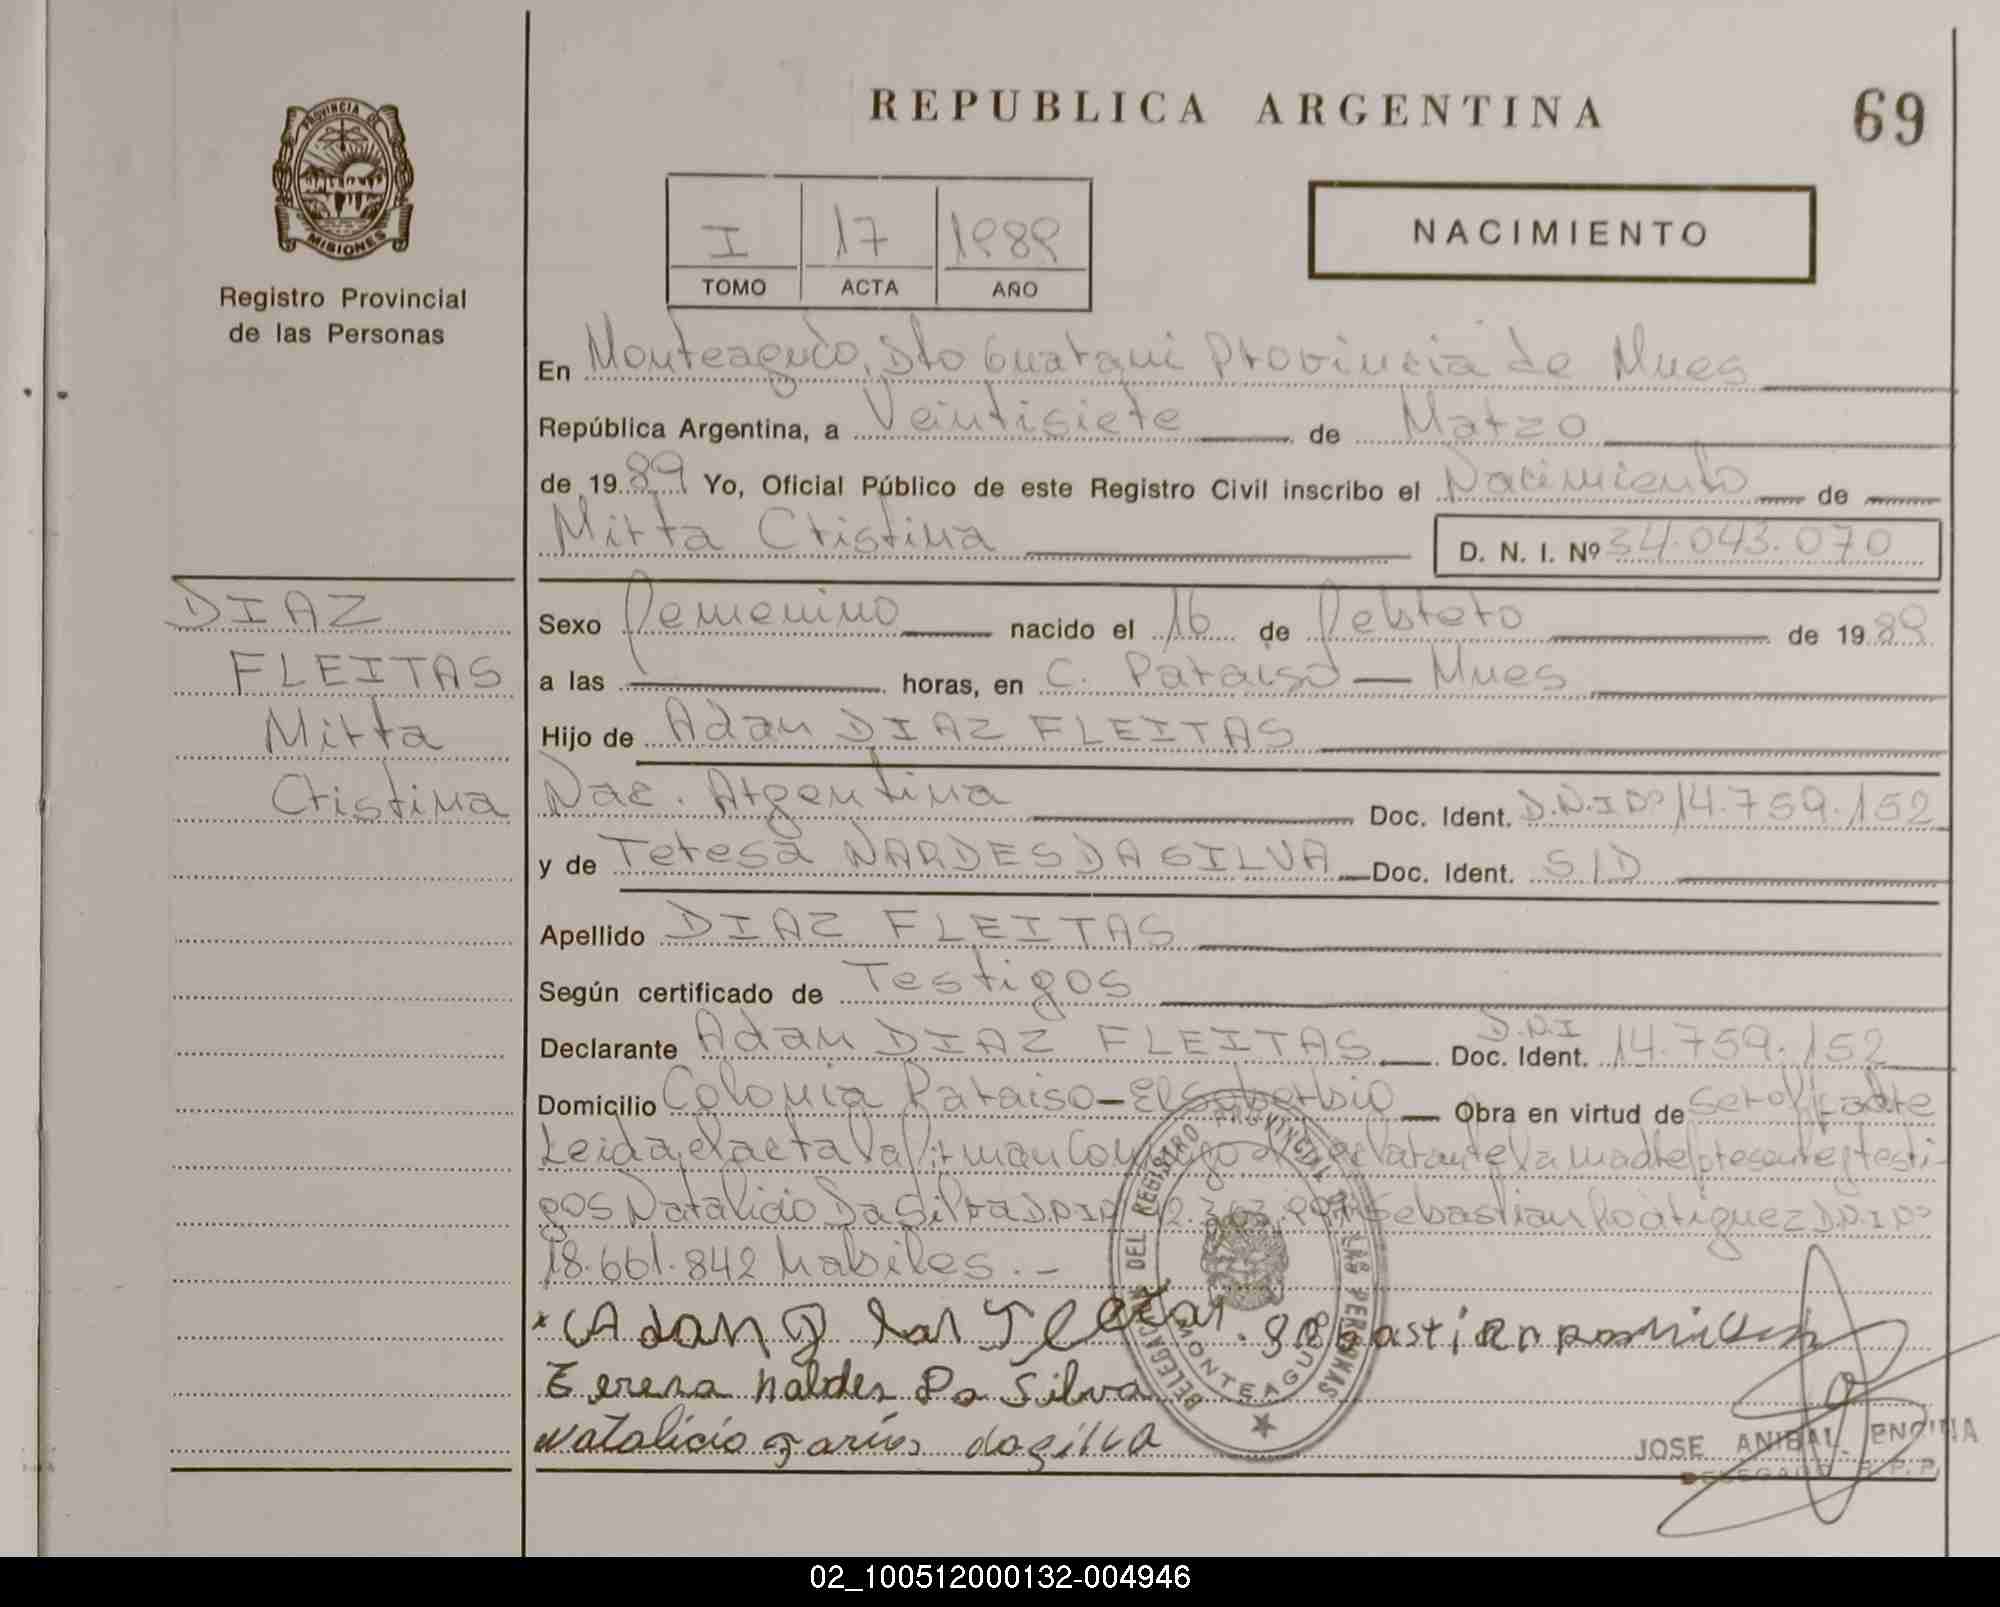 PROVINCIA DE
MISIONES
Registro Provincial
de las Personas
REPUBLICA ARGENTINA
69
I 17 1989
TOMO ACTA AÑO
NACIMIENTO
En Monteagudo, Dto Guarani Provincia de Mnes
República Argentina, a Veintisiete de Marzo
de 1989 Yo, Oficial Público de este Registro Civil inscribo el Nacimiento de
Mirta Cristina D. N. I. Nº 34.043.070
DIAZ
FLEITAS
Mirta
Cristina
Sexo Femenino nacido el 16 de Febrero de 1989
a las horas, en C. Paraiso — Mnes
Hijo de Adan DIAZ FLEITAS
Nac. Argentina Doc. Ident. D.N.I Nº 14.759.152
y de Teresa NARDES DA SILVA Doc. Ident. S/D
Apellido DIAZ FLEITAS
Según certificado de Testigos
Declarante Adan DIAZ FLEITAS Doc. Ident. D.N.I 14.759.152
Domicilio Colonia Paraiso — El Soberbio Obra en virtud de ser el padre
Leida el acta la firman conmigo el declarante la madre presente y testi-
gos Natalicio Da Silva D.N.I Nº Sebastian Rodriguez D.N.I Nº
18.661.842 habiles. —
Adan
Sebastian
Teresa nardes Da Silva
Natalicio dasilva
DELEGACION DEL REGISTRO PROVINCIAL DE LAS PERSONAS
MONTEAGUDO
JOSE ANIBAL ENCINA
DELEGADO R.P.P.
02_100512000132-004946